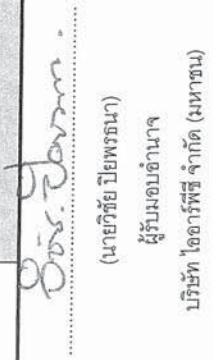 (นายวิชัย ปิยพรธนา)
ผู้รับมอบอำนาจ
บริษัท ไออาร์พีซี จำกัด (มหาชน)